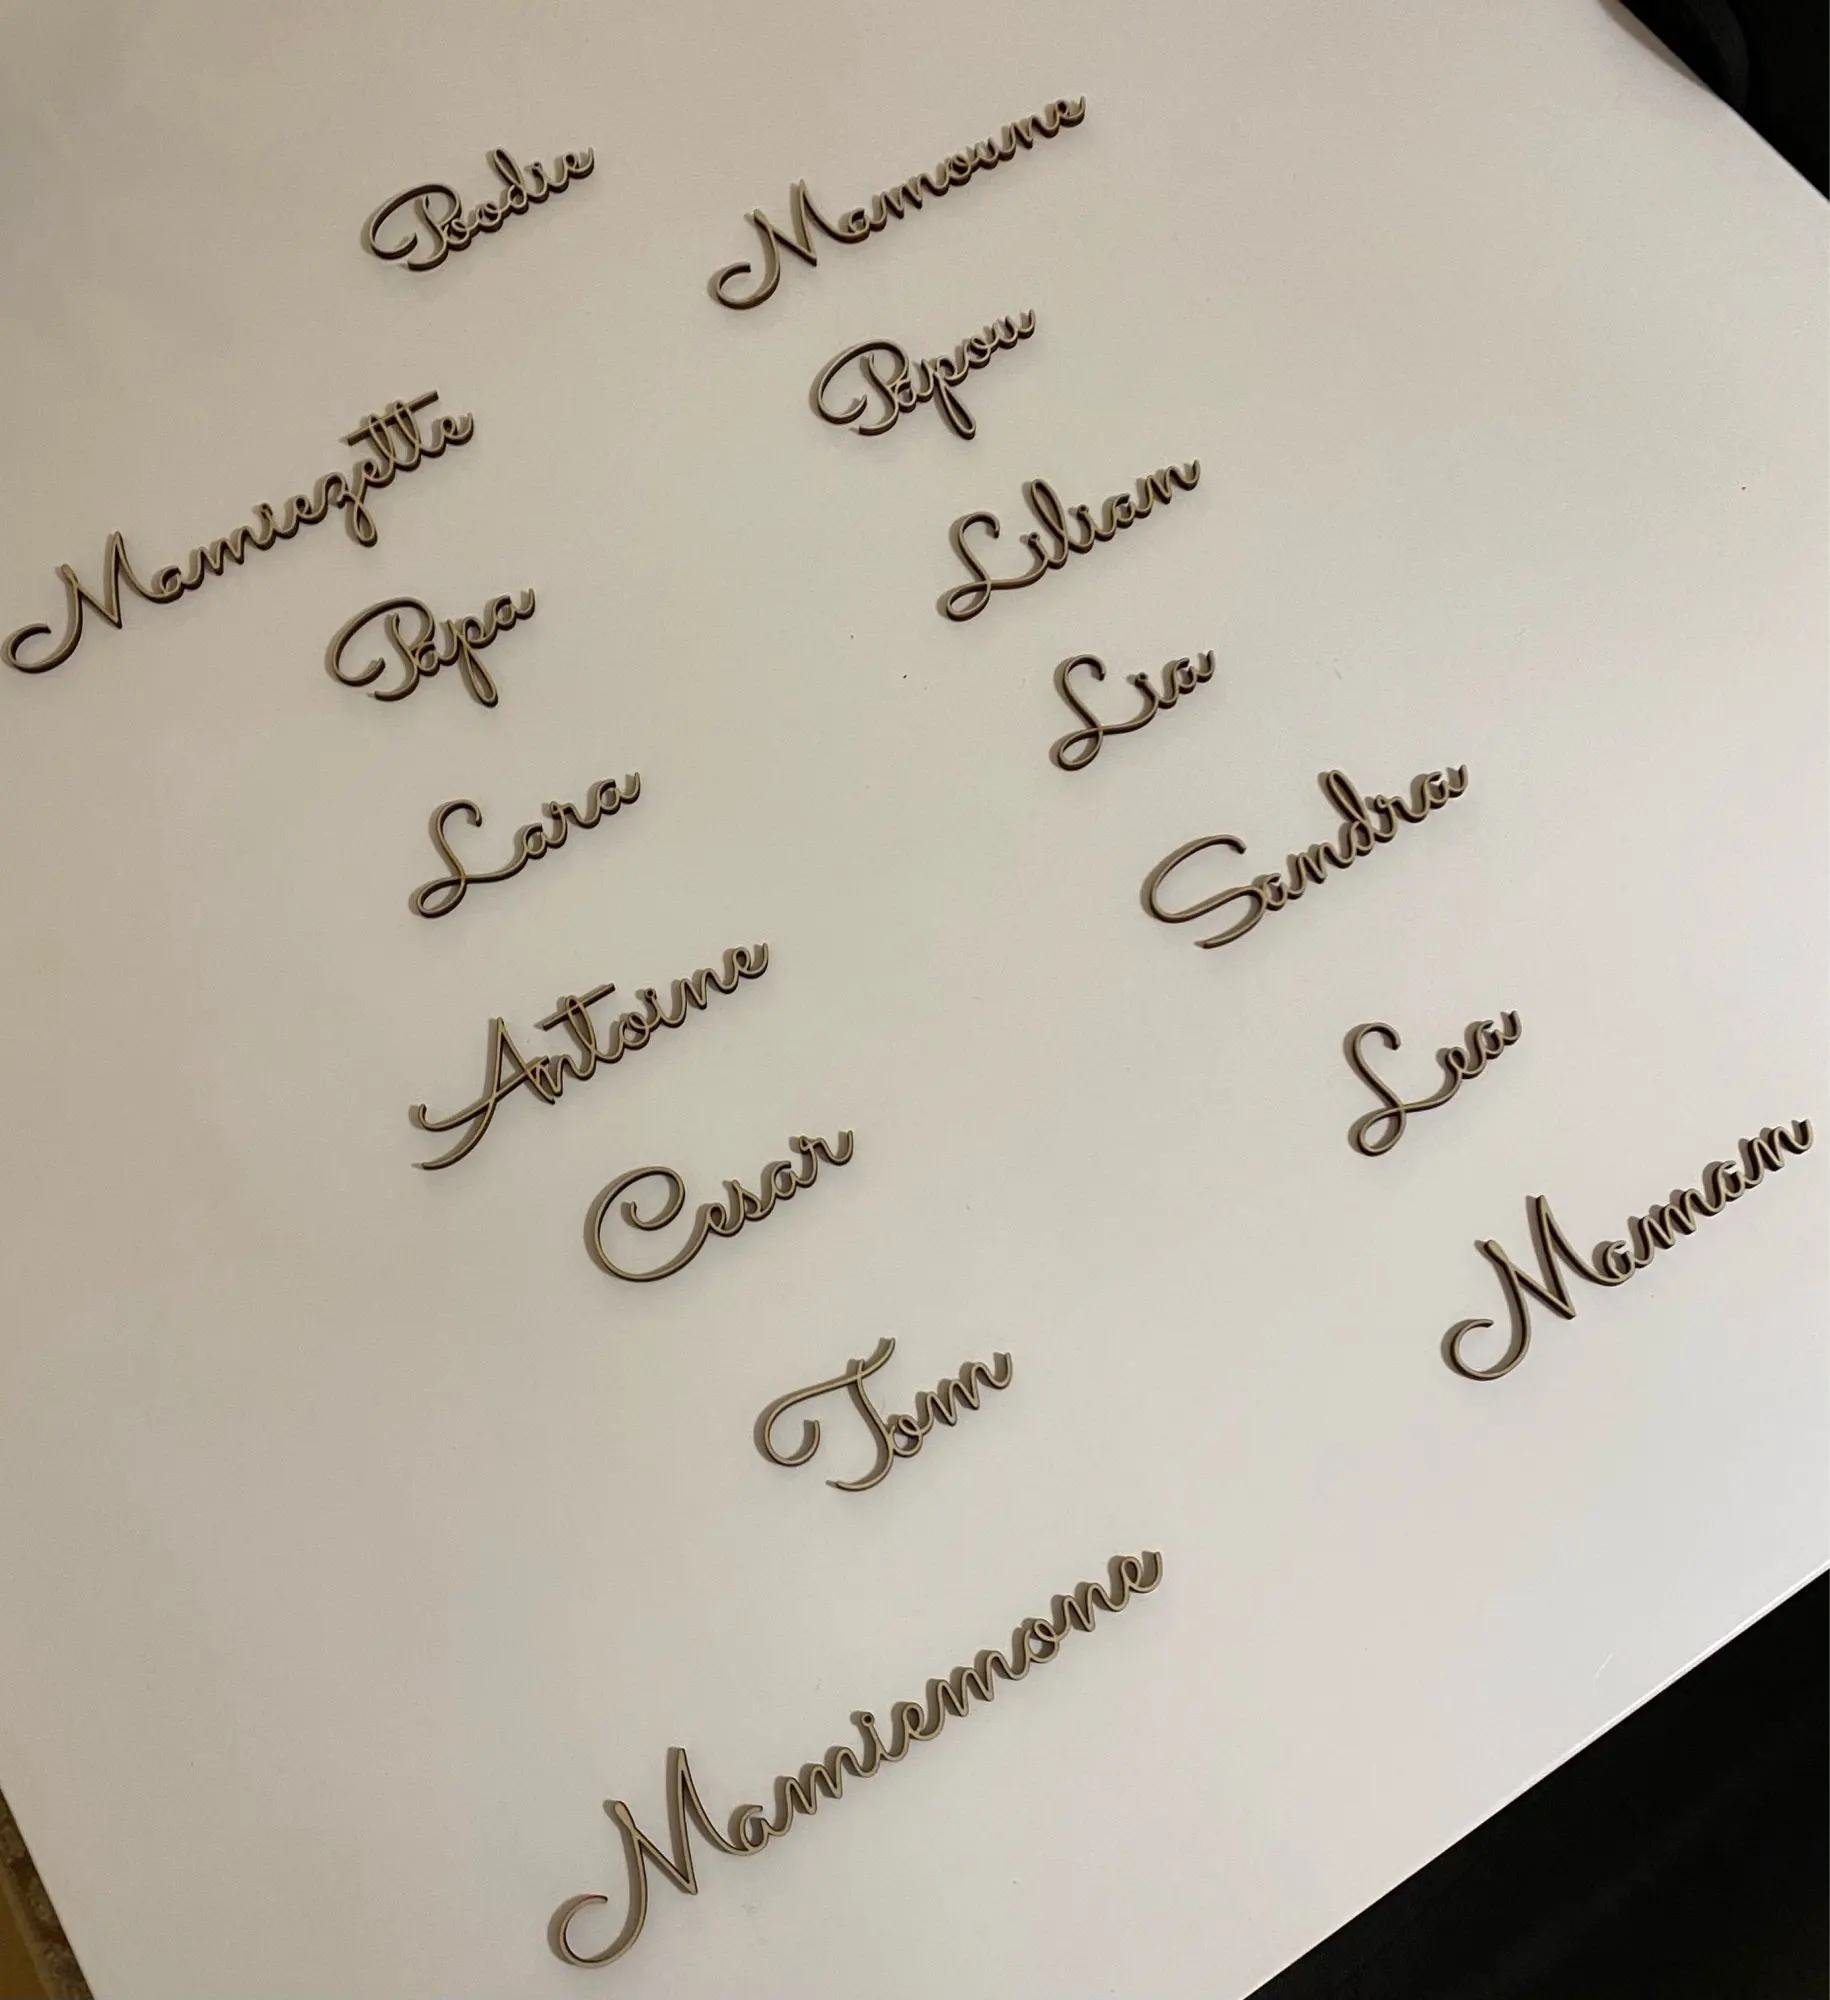 Poodie
Mamoune
Papou
Mamiezette
Papa
Lilian
Lia
Lara
Sandra
Antoine
Lea
Cesar
Maman
Tom
Mamiemone